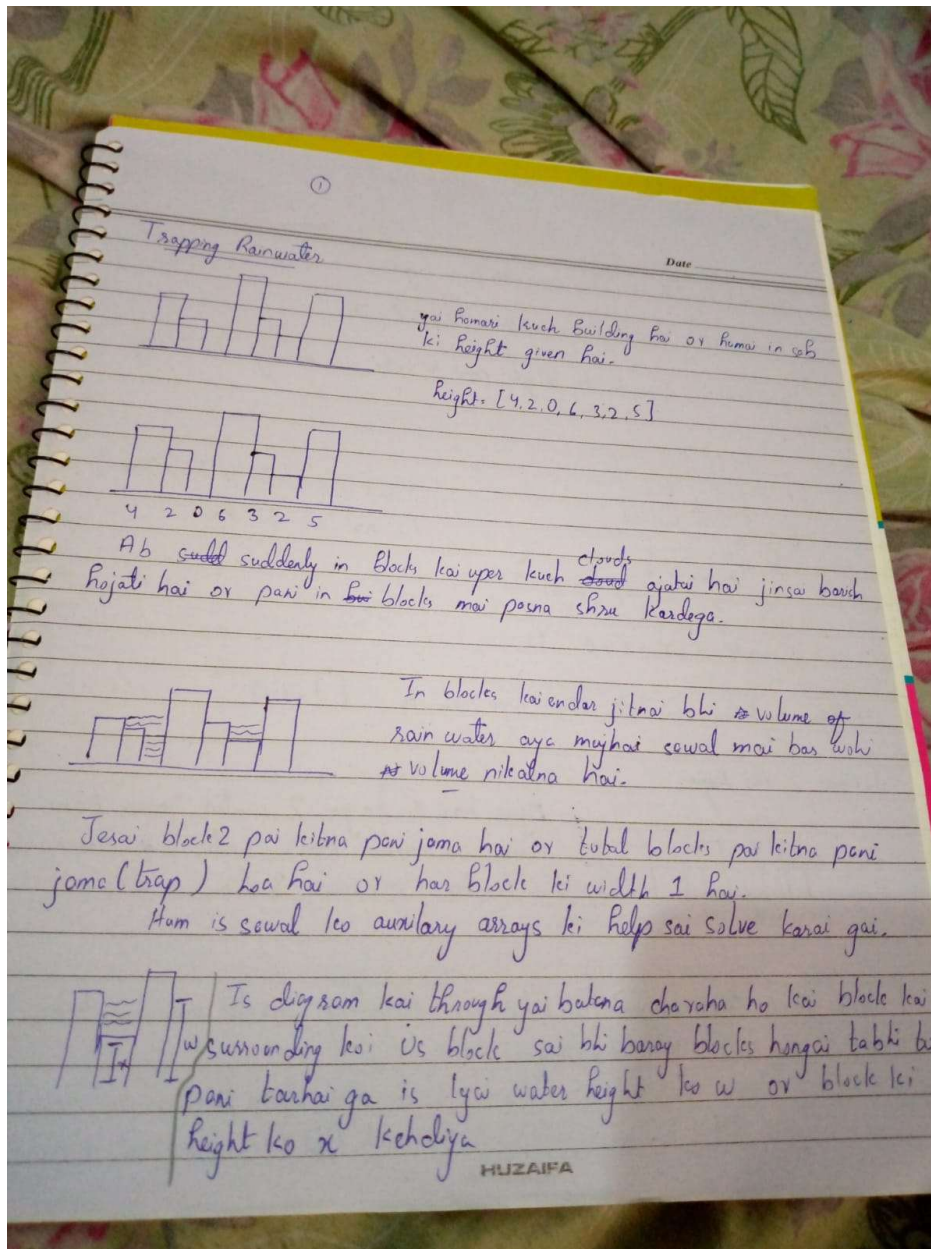 1
Trapping Rainwater
Date
yai hamari kuch building hai or humai in sab
ki height given hai.
height = [4,2,0,6,3,2,5]
4 2 0 6 3 2 5
Ab suddenly in blocks kai uper kuch clouds ajatai hai jinsai barish
hojati hai or pani in blocks mai posna shru kardega.
In blocks kai andar jitnai bhi volume of
rain water aya mujhai sawal mai bas wohi
volume nikalna hai.
Jesai block 2 pai kitna pani jama hai or total blocks pai kitna pani
jama (trap) hoa hai or har block ki width 1 hai.
Ham is sawal ko auxilary arrays ki help sai solve karai gai.
x w
Is diagram kai through yai batana charaha ho kai block kai
surrounding koi us block sai bhi baray blocks hongai tabhi to
pani tarhai ga is lyai water height ko w or block ki
height ko x kehdiya
HUZAIFA